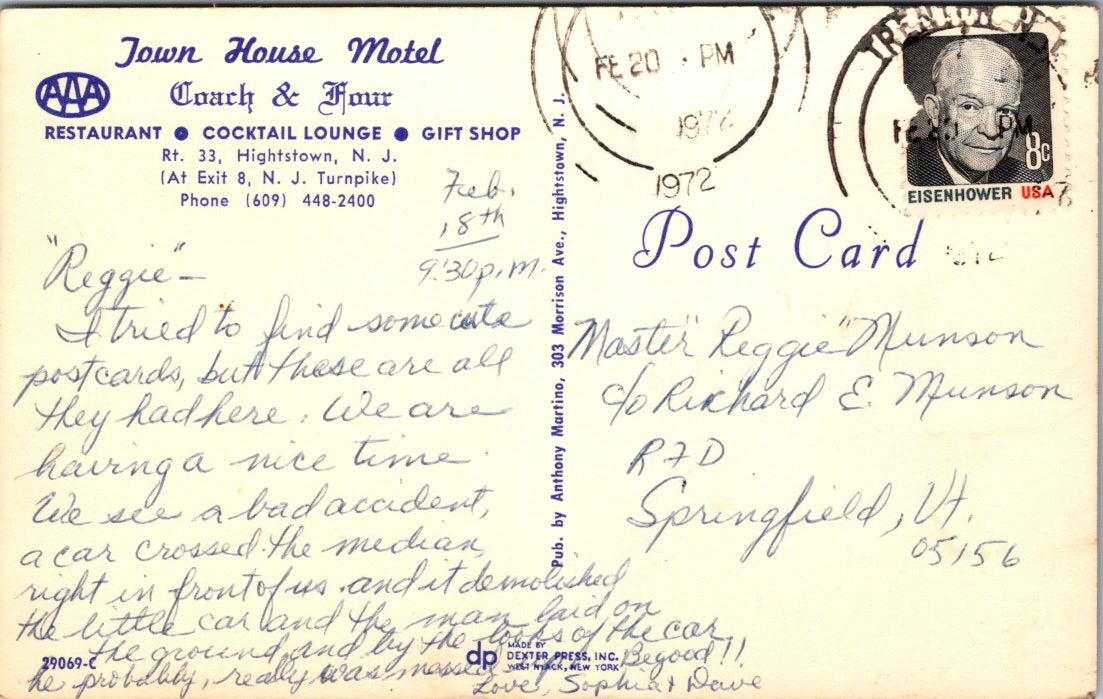 Town House Motel
AAA
Coach & Four
RESTAURANT ● COCKTAIL LOUNGE ● GIFT SHOP
Rt. 33, Hightstown, N. J.
(At Exit 8, N. J. Turnpike)
Phone (609) 448-2400
Feb.
18th
9:30 p.m.
"Reggie"—
I tried to find some cute
postcards, but these are all
they had here. We are
having a nice time.
We see a bad accident,
a car crossed the median,
right in front of us and it demolished
the little car and the man laid on
the ground, and by the looks of the car
he probably, really was messed up. Be good!!
Love, Sophia & Dave
29069-C
dp
MADE BY
DEXTER PRESS, INC.
WEST NYACK, NEW YORK
Pub. by Anthony Martino, 303 Morrison Ave., Hightstown, N. J.
FE 20 PM
1972
1972
TRENTON N.J.
FE 20 PM
8c
EISENHOWER USA
Post Card
Master "Reggie" Munson
c/o Richard E. Munson
RFD
Springfield, Vt.
05156